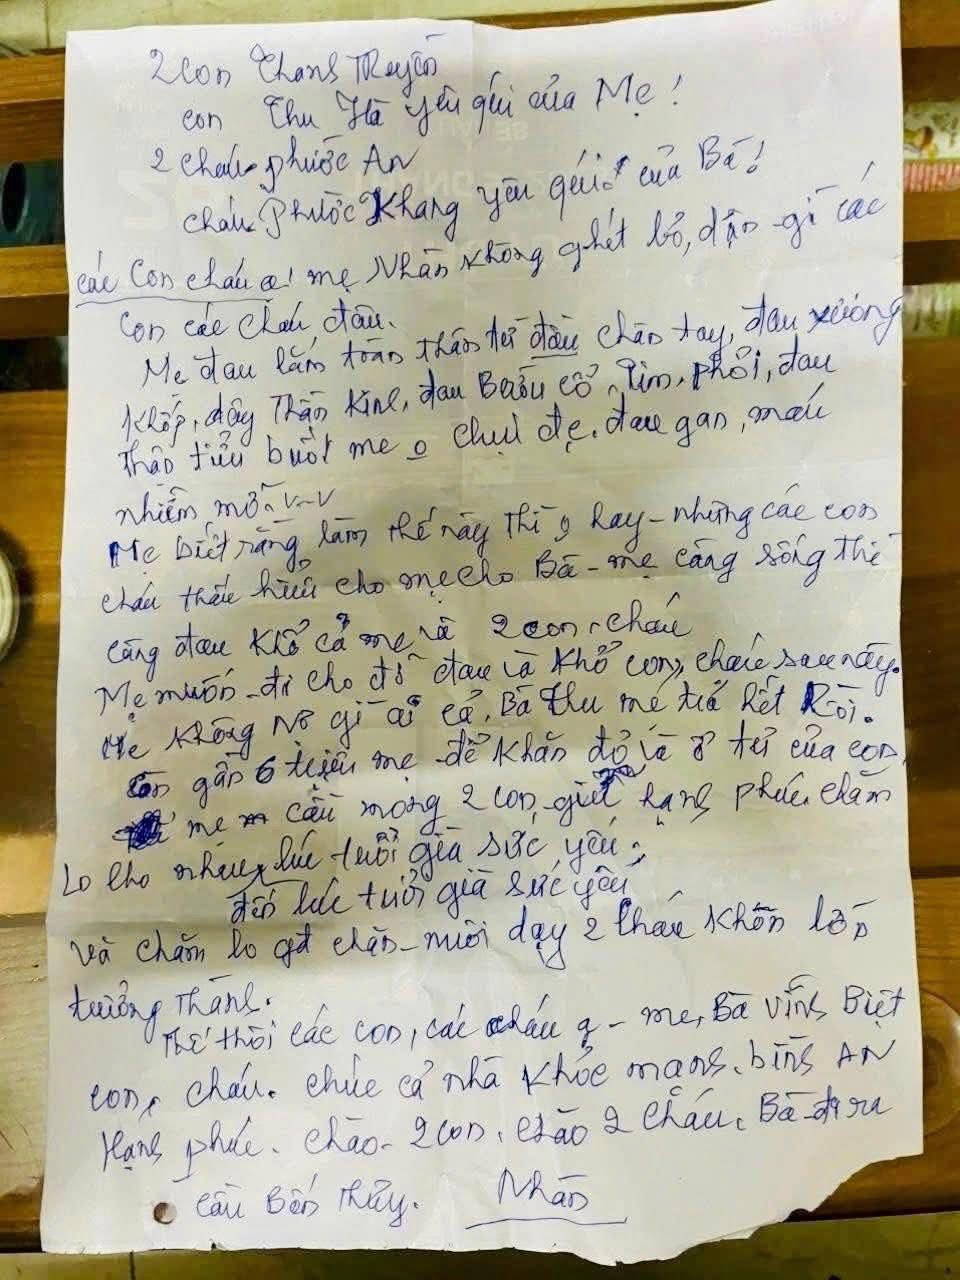 2 con Thanh Tuyến
con Thu Hà yêu quí của Mẹ!
2 cháu Phước An
cháu Phước Khang yêu quí của Bà!
các con cháu ạ! mẹ Nhàn không ghét bỏ, dận gì các
con các cháu đâu.
Mẹ đau lắm toàn thân từ đầu chân tay, đau xương
khớp, dây thần kinh, đau Bướu cổ, Tim, phổi, đau
thận tiểu buốt mẹ o chịu đc, đau gan, máu
nhiễm mỡ v-v
Mẹ biết rằng làm thế này thì o hay - nhưng các con
cháu thấu hiểu cho mẹ cho Bà - mẹ càng sống thì
càng đau khổ cả mẹ và 2 con, cháu
Mẹ muốn đi cho đỡ đau và khổ con, cháu sau này.
Mẹ không nợ gì ai cả, Bà Thu mẹ trả hết Rồi.
còn gần 6 triệu mẹ để khăn đỏ và ở tủ của con,
mẹ cầu mong 2 con giữ hạnh phúc chăm
Lo cho nhau lúc tuổi già sức yếu.
đến lúc tuổi già sức yếu
và chăm lo gđ chăn - nuôi dạy 2 cháu khôn lớn
trưởng thành.
Thế thôi các con, các cháu ạ - mẹ, Bà vĩnh Biệt
con, cháu. chúc cả nhà khỏe mạnh, bình AN
Hạnh phúc. chào 2 con, chào 2 cháu, Bà đi ra
cầu Bến Thủy. Nhàn